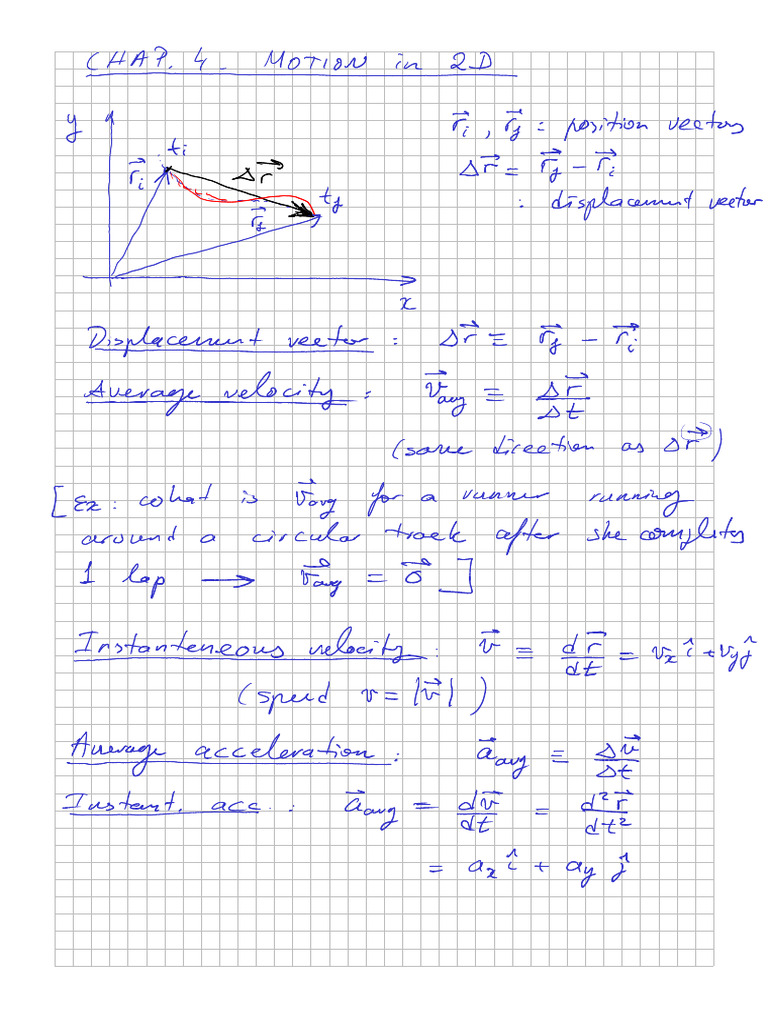 CHAP. 4 - MOTION in 2D
y
t_i
\vec{r}_i
Δ\vec{r}
t_f
\vec{r}_f
x
\vec{r}_i , \vec{r}_f = position vectors
Δ\vec{r} = \vec{r}_f - \vec{r}_i
: displacement vector
Displacement vector : Δ\vec{r} ≡ \vec{r}_f - \vec{r}_i
Average velocity : \vec{v}_{avg} ≡ \frac{Δ\vec{r}}{Δt}
(same direction as Δ\vec{r})
[Ex: what is \vec{v}_{avg} for a runner running
around a circular track after she completes
1 lap → \vec{v}_{avg} = \vec{0} ]
Instanteneous velocity : \vec{v} ≡ \frac{d\vec{r}}{dt} = v_x \hat{i} + v_y \hat{j}
(speed v = |\vec{v}| )
Average acceleration : \vec{a}_{avg} = \frac{Δ\vec{v}}{Δt}
Instant. acc. : \vec{a}_{avg} = \frac{d\vec{v}}{dt} = \frac{d^2\vec{r}}{dt^2}
= a_x \hat{i} + a_y \hat{j}